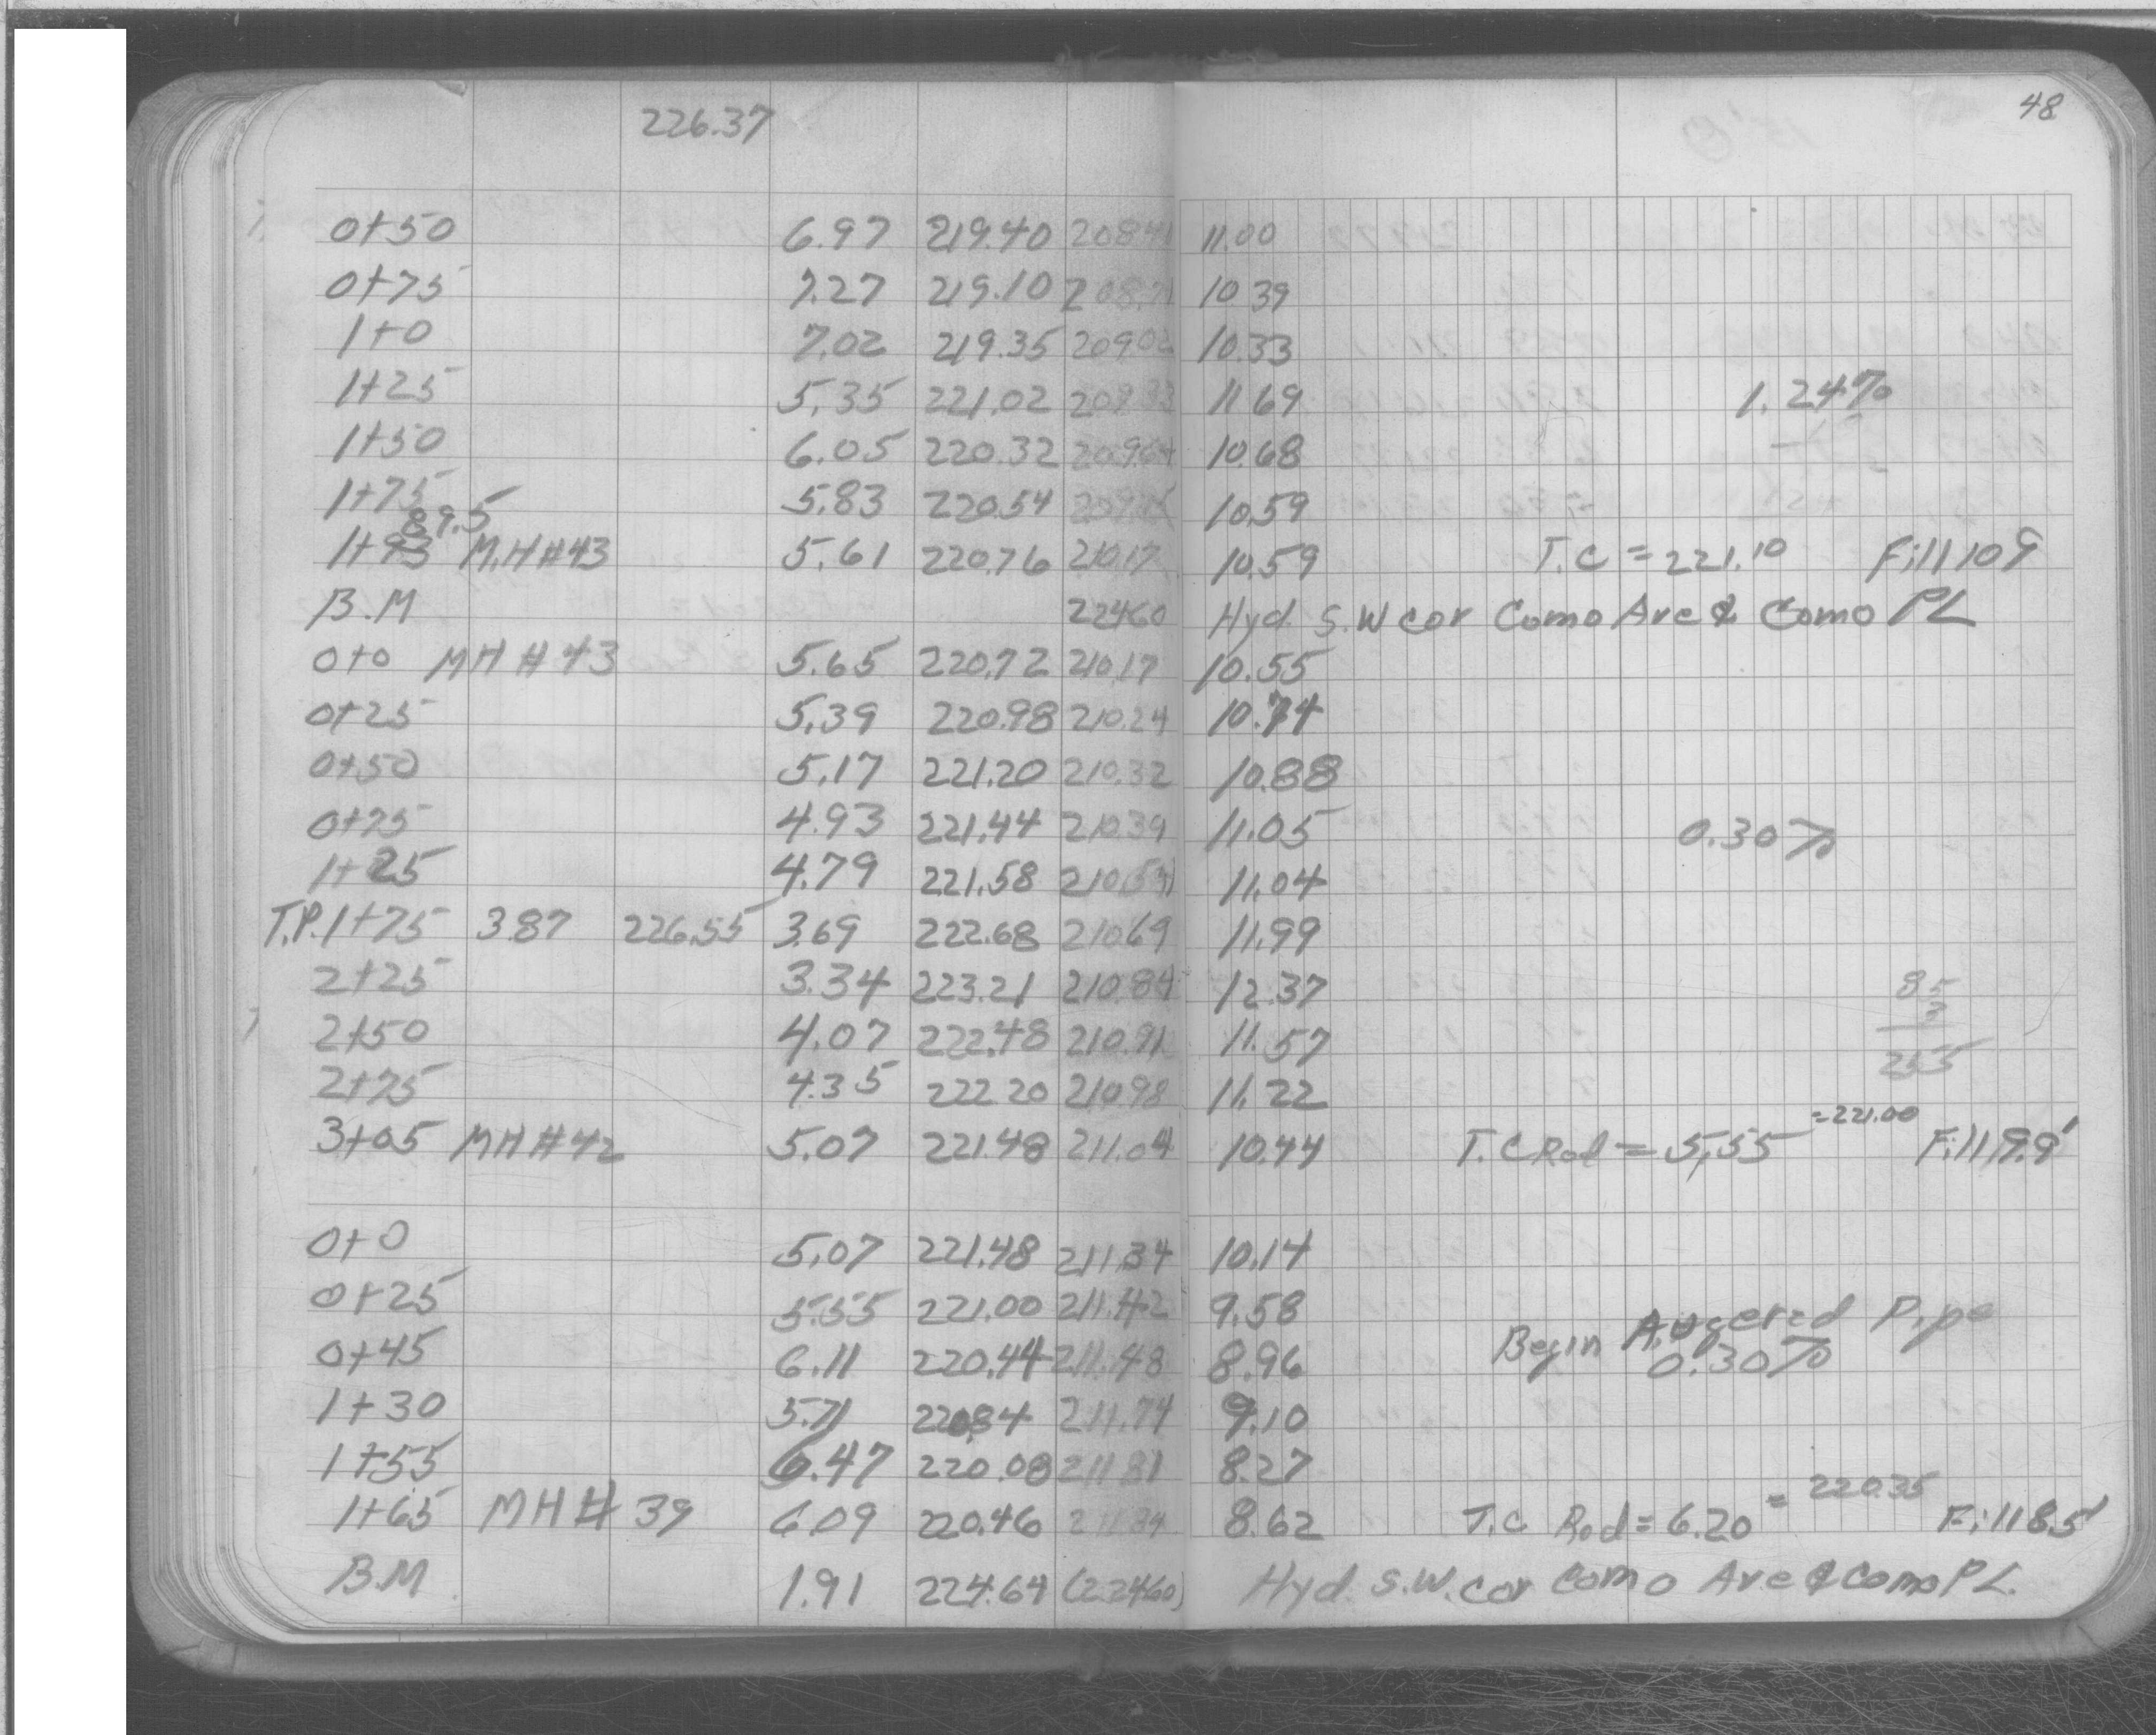 48
226.37
0+50 6.97 219.40 208.41 11.00
0+75 7.27 219.10 208.71 10.39
1+0 7.02 219.35 209.02 10.33
1+25 5.35 221.02 209.33 11.69
1.24%
1+50 6.05 220.32 209.64 10.68
1+75 5.83 220.54 209.95 10.59
89.5
1+93 M.H#43 5.61 220.76 210.17 10.59 T.C = 221.10 Fill 10 9
B.M 224.60 Hyd. S.W cor Como Ave & Como PL
0+0 MH # 43 5.65 220.72 210.17 10.55
0+25 5.39 220.98 210.24 10.74
0+50 5.17 221.20 210.32 10.88
0+75 4.93 221.44 210.39 11.05 0.30%
1+25 4.79 221.58 210.54 11.04
T.P. 1+75 3.87 226.55 3.69 222.68 210.69 11.99
2+25 3.34 223.21 210.84 12.37 85
3
2+50 4.07 222.48 210.91 11.57
255
2+75 4.35 222.20 210.98 11.22
=221.00
3+05 MH #42 5.07 221.48 211.04 10.44 T.C Rod = 5.55 Fill 9.9'
0+0 5.07 221.48 211.34 10.14
0+25 5.55 221.00 211.42 9.58
Begin Augered Pipe
0+45 6.11 220.44 211.48 8.96 0.30%
1+30 5.71 220.84 211.74 9.10
1+55 6.47 220.08 211.81 8.27
1+65 MH # 39 6.09 220.46 211.84 8.62 T.C Rod = 6.20 = 220.35 Fill 8.5'
B.M 1.91 224.64 (224.60) Hyd. S.W. cor Como Ave & Como PL.